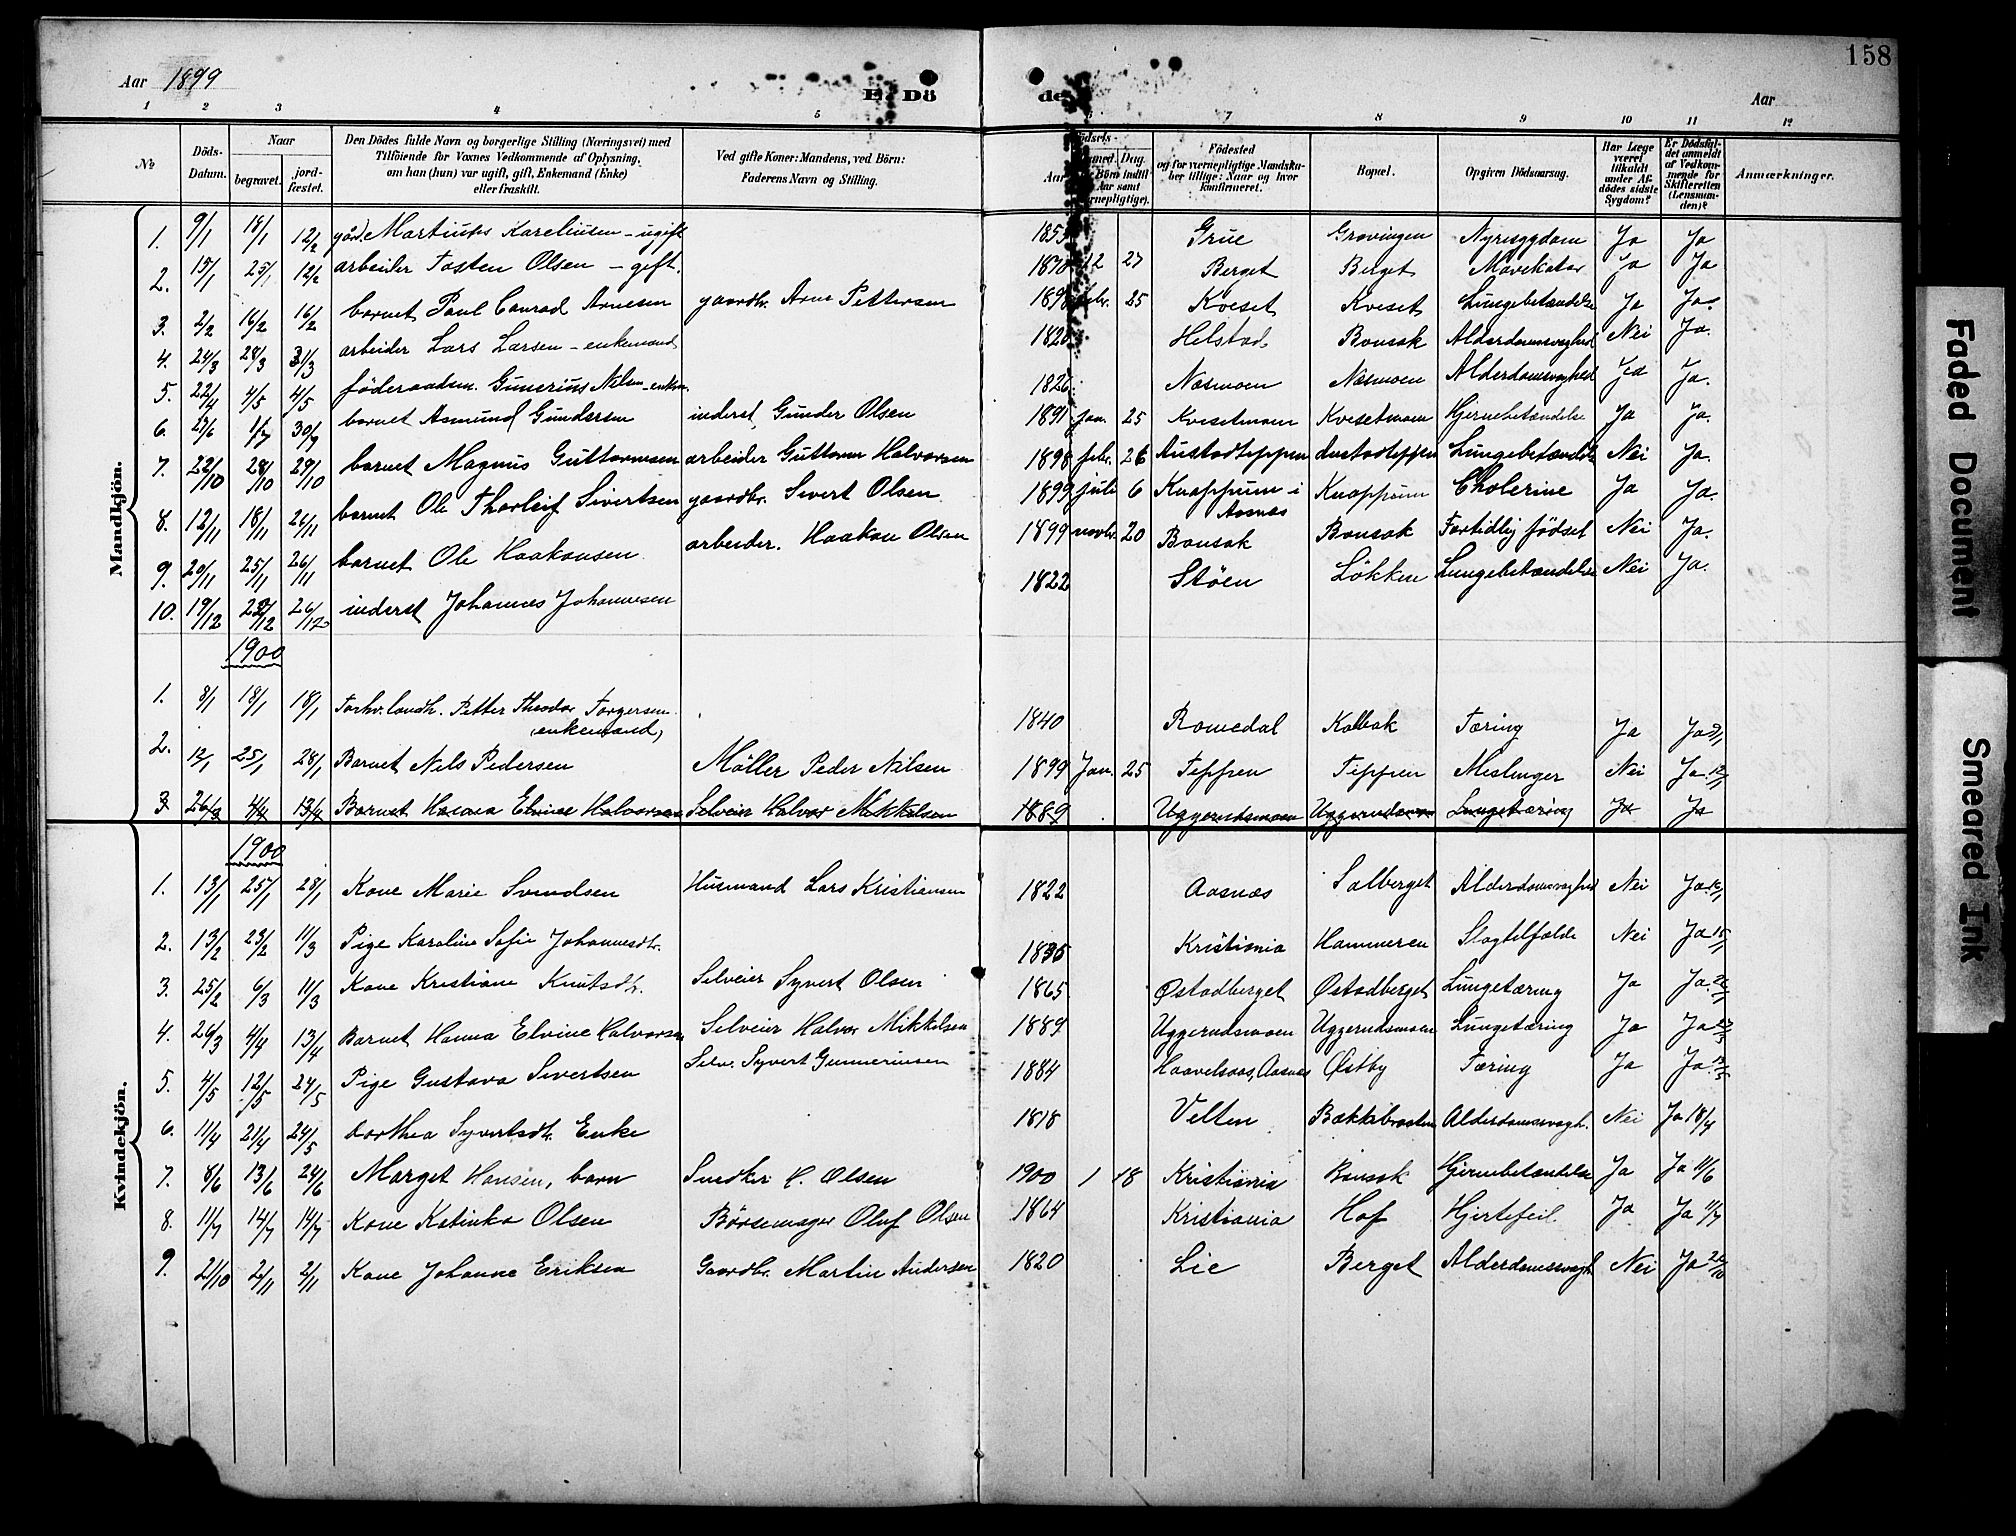 158
Aar 1899
E. Dö
de.
Aar
1 2 3 4 5 6 7 8 9 10 11 12
No
Döds-Datum.
Naar
begravet.
jord-fæstet.
Den Dödes fulde Navn og borgerlige Stilling (Næringsvei) med
Tilföiende for Voxnes Vedkommende af Oplysning,
om han (hun) var ugift, gift, Enkemand (Enke)
eller fraskilt.
Ved gifte Koner: Mandens, ved Börn:
Faderens Navn og Stilling.
Aar
Dag.
Födested
og for værnepligtige Mandska-
ber tillige: Naar og hvor
konfirmeret.
Bopæl.
Opgiven Dödsaarsag.
Har Læge
været
tilkaldt
under Af-
dödes sidste
Sygdom?
Er Dödsfal-
det anmeldt
af Vedkom-
mende for
Skifteretten
(Lensman-
den)?
Anmærkninger.
Mandkjön.
1. 9/1 18/1 12/2 Martinus Kareliusen - ugift Grue Grovingen Nyresygdom Ja Ja
2. 15/1 25/1 12/2 arbeider Tosten Olsen - gift. 1870 12 27 Berget Berget Mavekatar Ja Ja
3. 2/2 16/2 16/2 barnet Paul Conrad Arnesen gaardbr. Arne Pettersen 25 Kveset Kveset Lungebetændelse Ja Ja
4. 24/3 28/3 31/3 arbeider Lars Larsen - enkemand Helstad Bonsak Alderdomssvaghed Nei Ja.
5. 22/4 4/5 4/5 föderaadsm. Gunerius Nilsen - enkem. 1826 Næsmoen Næsmoen Alderdomssvaghed Ja.
6. 1/7 30/7 barnet Asmund Gundersen inderst Gunder Olsen 1891 jan. 25 Kvesetmoen Kvesetmoen Hjernebetændelse Ja Ja.
7. 22/10 28/10 29/10 barnet Magnus Guttormsen arbeider Guttorm Halvorsen 1898 febr. 26 Austadteppen Austadteppen Lungebetændelse Nei Ja.
8. 12/11 18/11 26/11 barnet Ole Thorleif Sivertsen gaardbr. Sivert Olsen 1899 juli 6 Knappum i Aasnæs Knappum Cholerine Ja Ja.
9. 20/11 25/11 26/11 barnet Ole Haakonsen arbeider. Haakon Olsen 1899 novbr. 20 Bonsak Bonsak Fortidlig födsel Nei Ja.
10. 19/12 26/12 inderst Johannes Johannesen 1822 Stöen Lökken Lungebetændelse Nei Ja.
1900
1. 8/1 18/1 18/1 Forhv. landh. Petter Theodor Torgersen (enkemand) 1840 Romedal Kolbak Tæring Ja Ja
2. 12/1 25/1 28/1 Barnet Nels Pedersen Möller Peder Nilsen 1899 Jan. 25 Teppen Teppen Meslinger Nei Ja
3 26/3 4/4 13/4 Barnet Hanna Elvine Halvorsen Selveier Halvor Mikkelsen 1889 Uggerudsmoen Uggerudsmoen Lungetæring Ja Ja
Kvindekjön.
1900
1. 13/1 25/1 28/1 Kone Marie Svendsen Husmand Lars Kristiansen 1822 Aasnæs Solberget Alderdomssvaghed Nei Ja
2. 13/2 23/2 11/3 Pige Karoline Sofie Johannesdtr. Kristiania Hammeren Slagtilfælde Nei Ja
3. 25/2 6/3 11/3 Kone Kristiane Knutsdtr. Selveier Syvert Olsen 1865 Østadberget Østadberget Lungetæring Ja Ja
4. 26/3 4/4 13/4 Barnet Hanna Elvine Halvorsen Selveier Halvor Mikkelsen 1889 Uggerudsmoen Uggerudsmoen Lungetæring Ja Ja
5. 4/5 12/5 24/5 Pige Gustava Sivertsen Selv. Syvert Gunneriusen 1884 Haavelsaas, Aasnæs Østby Tæring Ja Ja
6. 11/4 21/4 24/5 Syvertsdtr. Enke 1818 Velten Alderdomssvagh. Nei Ja 18/4
7. 8/6 13/6 24/6 Marget Hansen, barn Snedker H. Olsen 1900 1 18 Kristiania Bonsak Hjernebetændelse Ja Ja 11/6
8. 11/7 14/7 14/7 Kone Katinka Olsen Börsemager Oluf Olsen 1864 Kristiania Hof Hjertefeil. Ja Ja 11/7
9. 21/10 2/11 2/11 Kone Johanne Eriksen Gaardbr. Martin Andersen 1820 Lie Berget Alderdomssvagh. Nei Ja
Faded Document
Smeared Ink